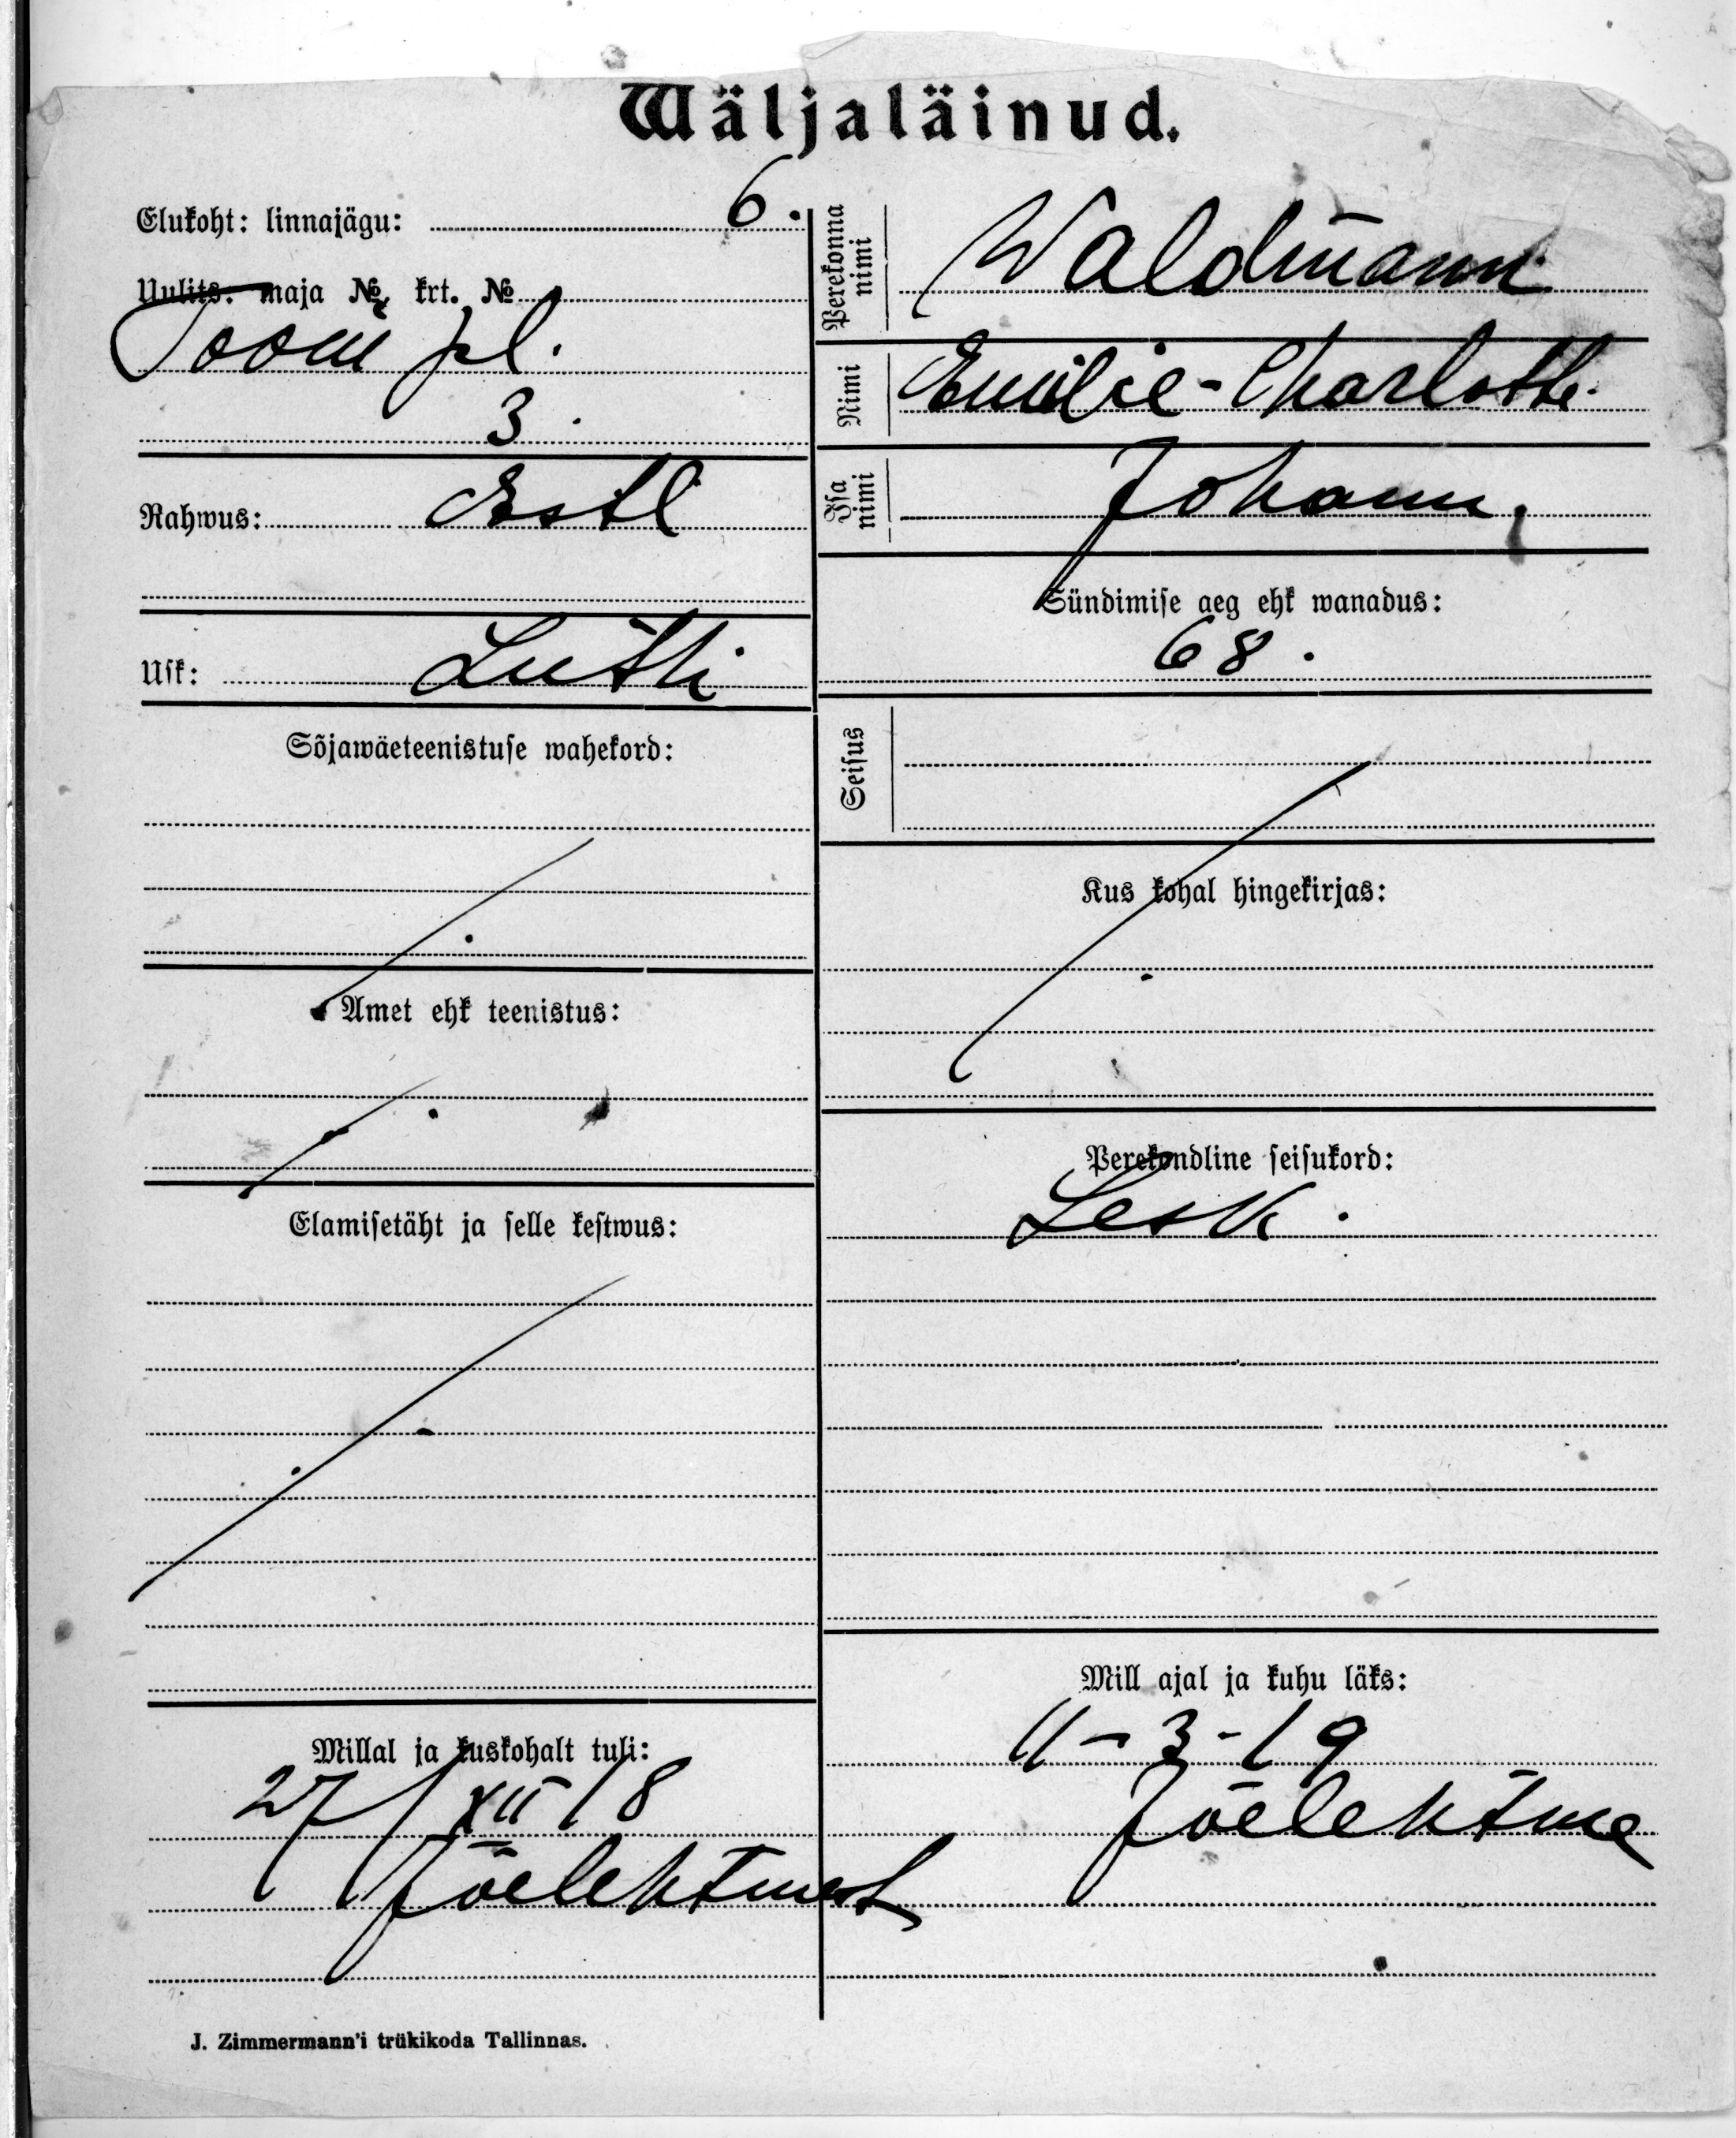 Wäljaläinud.
Elukoht: linnajägu: 6.
Uulits. maja № krt. №
Toom pl.
3.
Rahwus: Estl
Usk: Luth.
Sõjawäeteenistuse wahekord:
Amet ehk teenistus:
Elamisetäht ja selle kestwus:
Millal ja kuskohalt tuli:
27/XII 18
Jõelehtmest
J. Zimmermann'i trükikoda Tallinnas.
Perekonna nimi Waldmann
Nimi Emilie-Charlotte.
Isa nimi Johann,
Sündimise aeg ehk wanadus:
68.
Seisus
Kus kohal hingekirjas:
Perekondline seisukord:
Lesk.
Mill ajal ja kuhu läks:
11-3-19
Jõelehtme